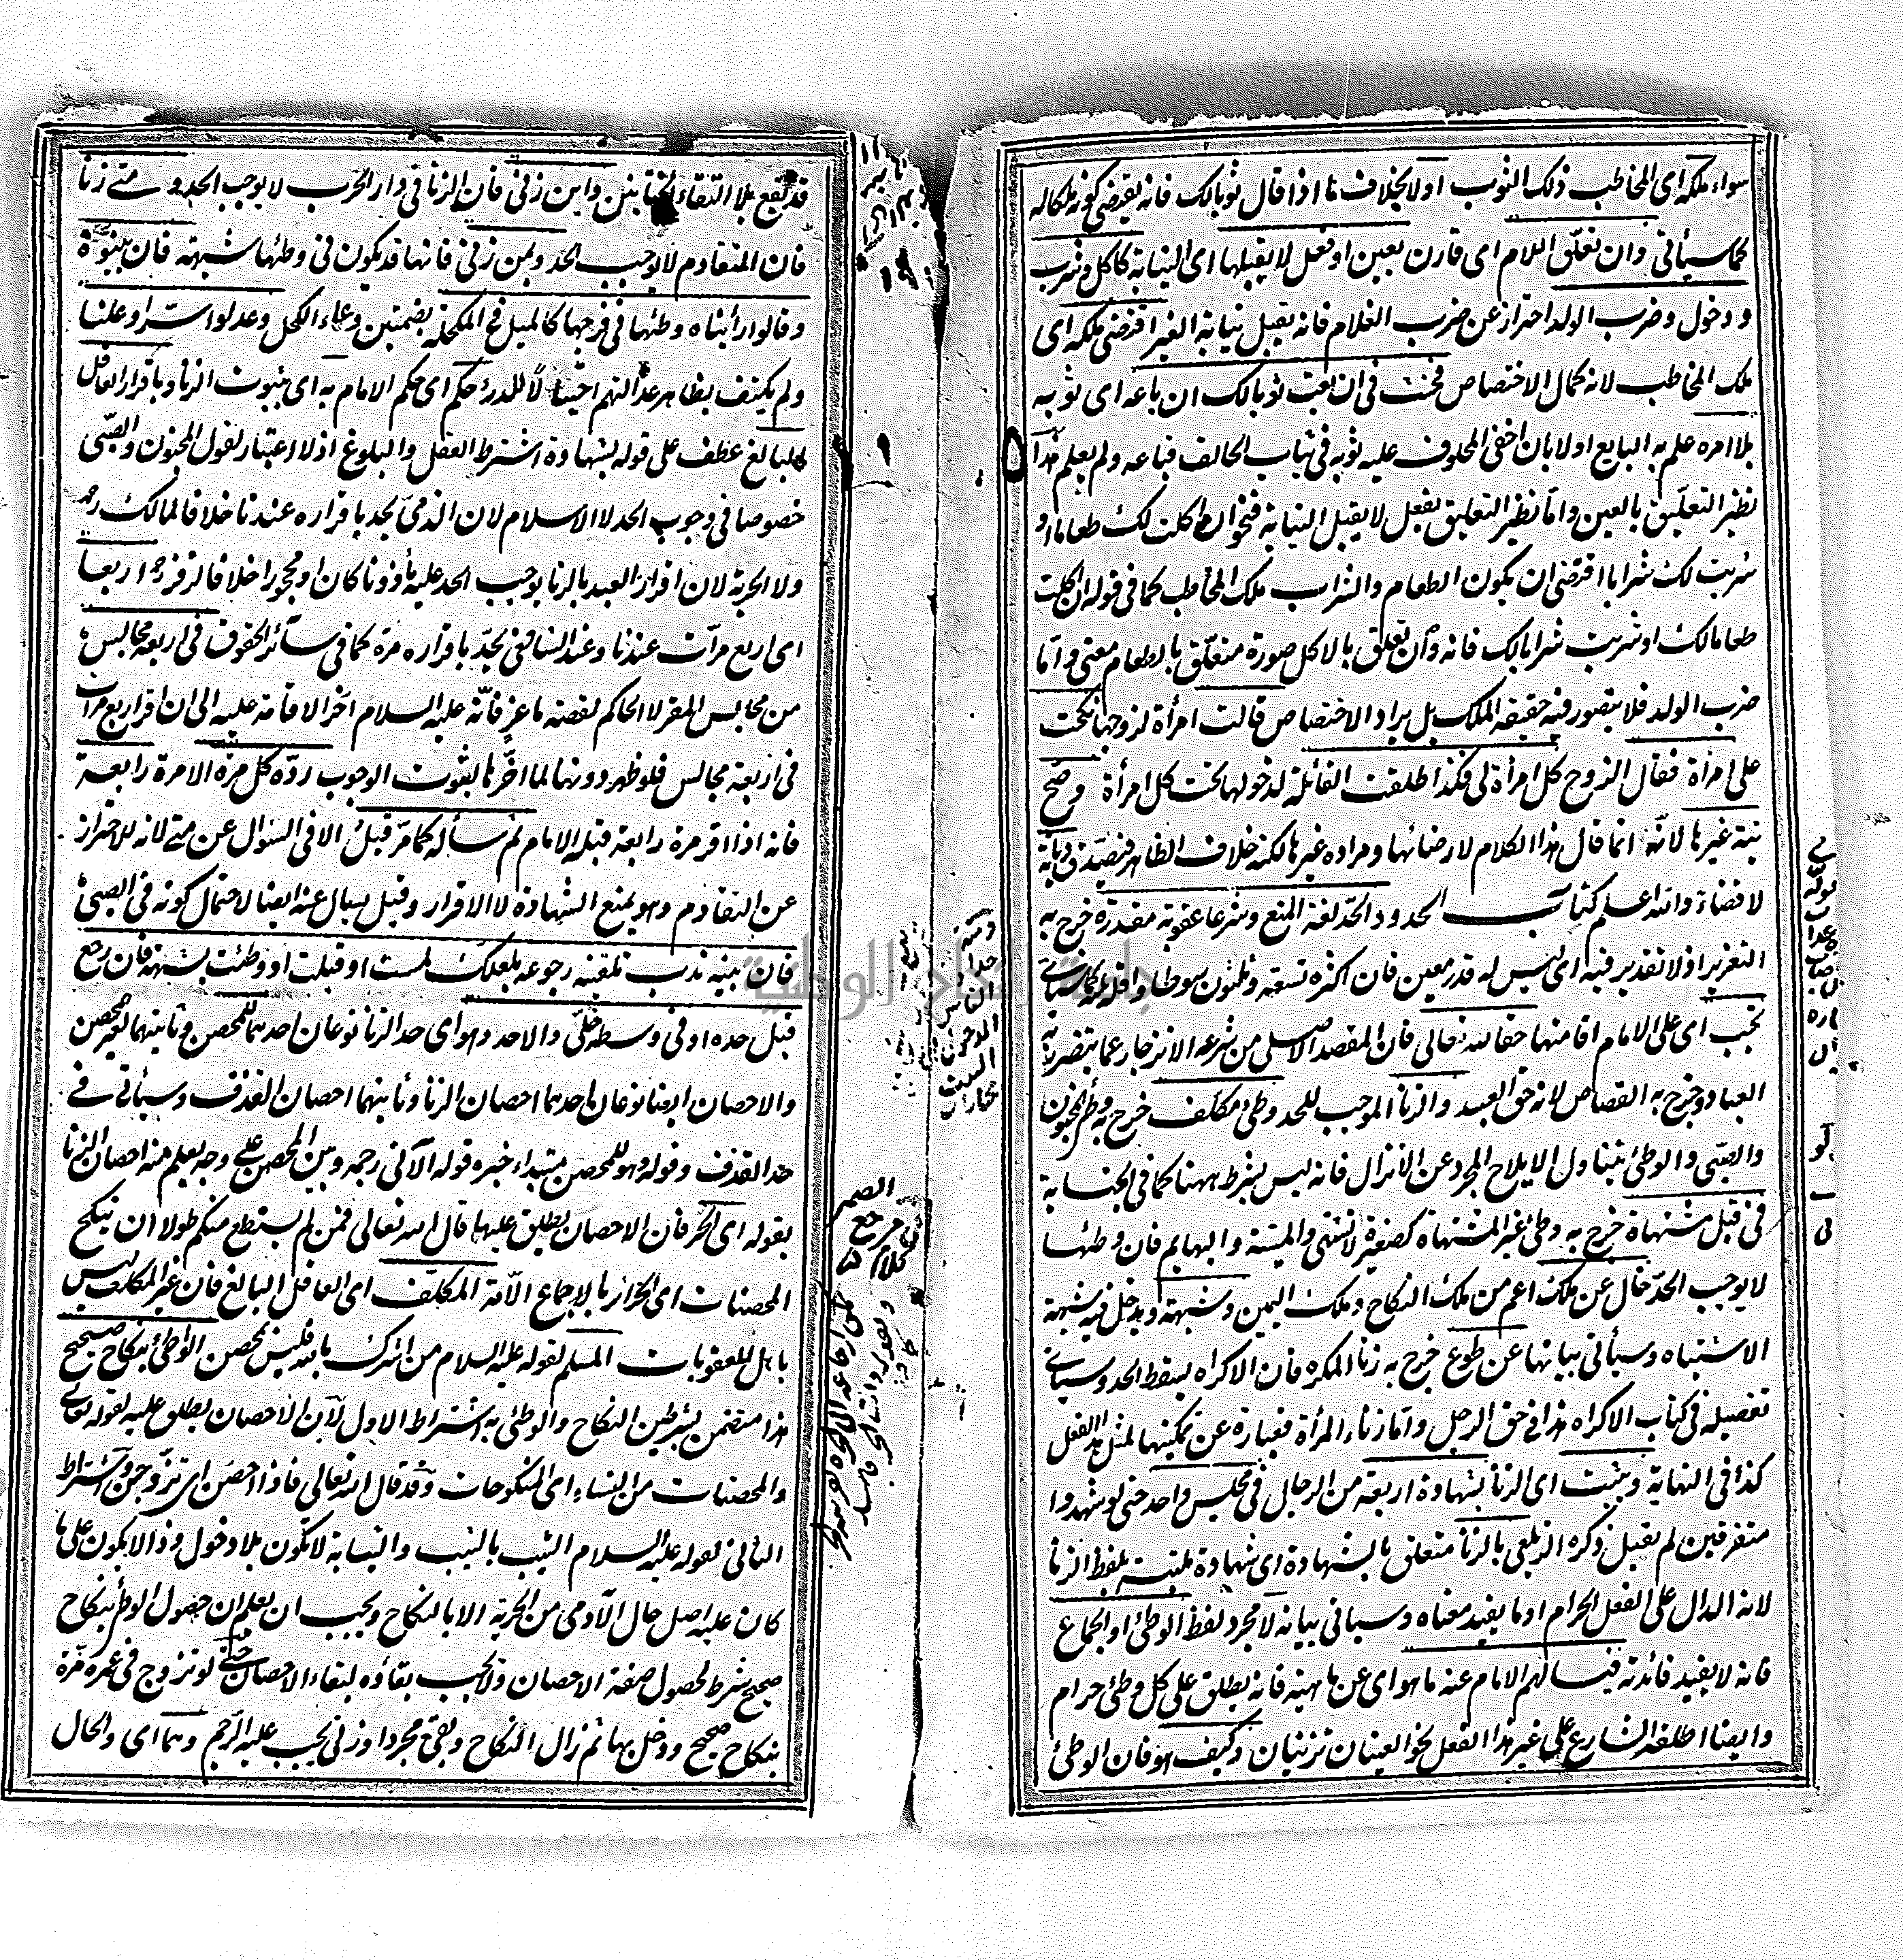 سواء ملكه اى المخاطب ذلك الثوب اولا بخلاف ما اذا قال ثوبا لك فانه يقتضى كونه ملكا له
كما سيأتى وان تعلق اللام اى قارن بعين او فعل لا يقبلها اى النيابة كاكل وشرب
و دخول وضرب الولد احتراز عن ضرب الغلام فانه يقبل نيابة الغير اقتضى ملكه اى
ملك المخاطب لانه كمال الاختصاص فحنث فى ان بعت ثوبا لك ان باعه اى ثوبه
بلا امره علم به البايع اولا بان اخفى المحلوف عليه ثوبه فى ثياب الحالف فباعه ولم يعلم هذا
نظير التعليق بالعين واما نظير التعليق بفعل لا يقبل النيابة فنحو ان اكلت لك طعاما او
شربت لك شرابا اقتضى ان يكون الطعام والشراب ملك المخاطب كما فى قوله ان اكلت
طعاما لك او شربت شرابا لك فانه وان تعلق بالاكل صورة متعلق بالطعام معنى واما
ضرب الولد فلا يتصور فيه حقيقة الملك بل يراد الاختصاص قالت امرأة لزوجها نكحت
على امرأة فقال الزوج كل امرأة لى فكذا طلقت القائلة لدخولها تحت كل امرأة وصح
نية غيرها لانه انما قال هذا الكلام لارضائها ومراده غيرها لكنه خلاف الظاهر فيصدق ديانة
لا قضاء والله اعلم كتاب الحدود الحد لغة المنع وشرعا عقوبة مقدرة خرج به
التعزير اذ لا تقدير فيه اى ليس له قدر معين فان اكثره تسعة وثلثون سوطا واقله ثلثة كما سيأتى
تجب اى على الامام اقامتها حقا لله تعالى فان المقصد الاصلى من شرعه الانزجار عما يتضرر به
العباد وخرج به القصاص لانه حق العبد والزنا الموجب للحد وطئ مكلف خرج به وطئ المجنون
والصبى والوطئ يتناول الايلاج المجرد عن الانزال فانه ليس بشرط ههنا كما فى الجنابة
فى قبل مشتهاة خرج به وطئ غير المشتهاة كصغيرة لا تشتهى والميتة والبهايم فان وطئها
لا يوجب الحد خال عن ملك اعم من ملك النكاح وملك اليمين وشبهة ويدخل فيه شبهة
الاشتباه وسيأتى بيانها عن طوع خرج به زنا المكره فان الاكراه يسقط الحد وسيأتى
تفصيله فى كتاب الاكراه هذا فى حق الرجل واما زناء المرأة فعبارة عن تمكينها لمثل هذا الفعل
كذا فى النهاية ويثبت اى الزنا بشهادة اربعة من الرجال فى مجلس واحد حتى لو شهدوا
متفرقين لم تقبل ذكره الزيلعى بالزنا متعلق بالشهادة اى شهادة ملتبسة بلفظ الزنا
لانه الدال على الفعل الحرام او ما يفيد معناه وسيأتى بيانه لا مجرد لفظ الوطئ او الجماع
فانه لا يفيد فائدته فيسألهم الامام عنه ما هو اى عن ماهيته فانه يطلق على كل وطئ حرام
وايضا اطلقه الشارع على غير هذا الفعل نحو العينان تزنيان وكيف هو فان الوطئ
قد يقع بلا التقاء الختانين واين زنى فان الزنا فى دار الحرب لا يوجب الحد ومتى زنا
فان المتقادم لا يوجب الحد وبمن زنى فانها قد يكون فى وطئها شبهة فان بينوه
وقالوا رأيناه وطئها فى فرجها كالميل فى المكحلة بضمتين وعاء الكحل وعدلوا سرا وعلنا
ولم يكتف بظاهر عدالتهم احتيالا للدرء حكم اى حكم الامام به اى بثبوت الزنا وباقرار العاقل
البالغ عطف على قوله بشهادة اشترط العقل والبلوغ اذ لا اعتبار لقول المجنون والصبى
خصوصا فى وجوب الحد لا الاسلام لان الذمى يحد باقراره عندنا خلافا لمالك رحمه
ولا الحرية لان اقرار العبد بالزنا يوجب الحد عليه مأذونا كان او محجورا خلافا لزفر رح اربعا
اى اربع مرات عندنا وعند الشافعى يحد باقراره مرة كما فى سائر الحقوق فى اربعة مجالس
من مجالس المقر لا الحاكم لقصة ماعز فانه عليه السلام اخر الاقامة عليه الى ان اقر اربع مرات
فى اربعة مجالس فلو ظهر دونها لما اخرها لثبوت الوجوب رده كل مرة الا مرة رابعة
فانه اذا اقر مرة رابعة قبله الامام ثم سأله كما مر قبل الا فى السؤال عن متى لانه للاحتراز
عن التقادم وهو يمنع الشهادة لا الاقرار وقيل يسأل عنه ايضا لاحتمال كونه فى الصبى
فان بينه ندب تلقينه رجوعه بلعلك لمست او قبلت او وطئت بشبهة فان رجع
قبل حده او فى وسطه خلى والا حد وهو اى حد الزنا نوعان احدهما للمحصن وثانيهما لغير المحصن
والاحصان ايضا نوعان احدهما احصان الزنا وثانيهما احصان القذف وسيأتى فى
حد القذف وقوله وهو للمحصن مبتداء خبره قوله الآتى رجمه وبين المحصن على وجه يعلم منه احصان الزنا
بقوله اى الحر فان الاحصان يطلق عليها قال الله تعالى فمن لم يستطع منكم طولا ان ينكح
المحصنات اى الحرائر بالاجماع الامة المكلف اى العاقل البالغ فان غير المكلف ليس
باهل للعقوبات المسلم لقوله عليه السلام من اشرك بالله فليس بمحصن الواطئ بنكاح صحيح
هذا متضمن بشرطين النكاح والوطئ به اشتراط الاول لان الاحصان يطلق عليه لقوله تعالى
والمحصنات من النساء اى المنكوحات وقد قال الله تعالى فاذا احصن اى تزوجن واشتراط
الثانى لقوله عليه السلام الثيب بالثيب والثيابة لا تكون بلا دخول وذا لا يكون على ما
كان عليه اصل حال الآدمى من الحرية الا بالنكاح ويجب ان يعلم ان حصول الوطئ بنكاح
صحيح شرط لحصول صفة الاحصان ولا يجب بقاؤه لبقاء الاحصان حتى لو تزوج فى عمره مرة
بنكاح صحيح ودخل بها ثم زال النكاح وبقى مجردا وزنى يجب عليه الرجم وهما اى والحال